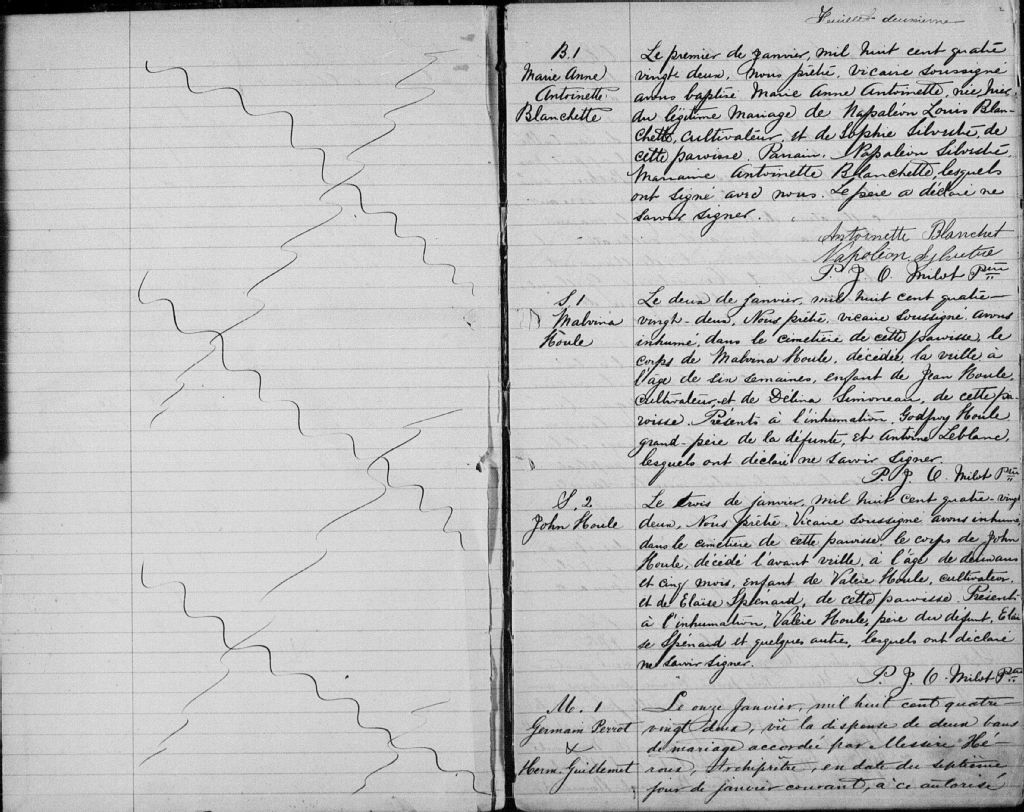 Feuillet deuxième
2
B. 1
Marie Anne
Antoinette
Blanchette
Le premier de janvier, mil huit cent quatre
vingt deux, Nous prêtre, vicaire soussigné
avons baptisé Marie Anne Antoinette, née hier
du légitime mariage de Napoléon Louis Blan-
chette, cultivateur, et de Sophie Silvestre, de
cette paroisse. Parrain, Napoléon Silvestre,
Marraine Antoinette Blanchette, lesquels
ont signé avec nous. Le père a déclaré ne
savoir signer.
Antoinette Blanchet
Napoléon Sylvestre
P. J. O. Milot Ptre
S. 1
Malvina
Houle
Le deux de janvier, mil huit cent quatre-
vingt-deux, Nous prêtre, vicaire soussigné, avons
inhumé, dans le cimetière de cette paroisse, le
corps de Malvina Houle, décédée la veille à
l'âge de six semaines, enfant de Jean Houle,
cultivateur, et de Délina Simoneau, de cette pa-
roisse. Présents à l'inhumation, Godfroy Houle
grand-père de la défunte, et Antoine Leblanc,
lesquels ont déclaré ne savoir signer.
P. J. O. Milot Ptre
S. 2
John Houle
Le trois de janvier, mil huit cent quatre-vingt
deux, Nous prêtre, Vicaire soussigné avons inhumé,
dans le cimetière de cette paroisse, le corps de John
Houle, décédé l'avant veille, à l'âge de deux ans
et cinq mois, enfant de Valère Houle, cultivateur,
et de Eloïse Spénard, de cette paroisse. Présents
à l'inhumation, Valère Houle, père du défunt, Eloï-
se Spénard et quelques autres, lesquels ont déclaré
ne savoir signer.
P. J. O. Milot Ptre
M. 1
Germain Perrot
&
Herm. Guillemet
Le onze janvier, mil huit cent quatre-
vingt deux, vu la dispense de deux bans
de mariage accordée par Messire Hé-
roux, Archiprêtre, en date du septième
jour de janvier courant, à ce autorisé